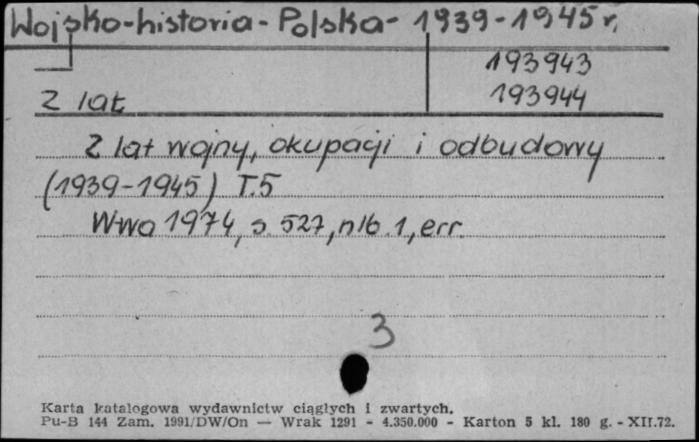 Wojsko-historia-Polska- 1939-1945 r.
193943
Z lat
193944
Z lat wojny, okupacji i odbudowy
(1939-1945) T.5
W-wa 1974, s. 527, nlb. 1, err.
3
Karta katalogowa wydawnictw ciągłych i zwartych.
Pu-B 144 Zam. 1991/DW/On — Wrak 1291 - 4.350.000 - Karton 5 kl. 180 g. - XII.72.